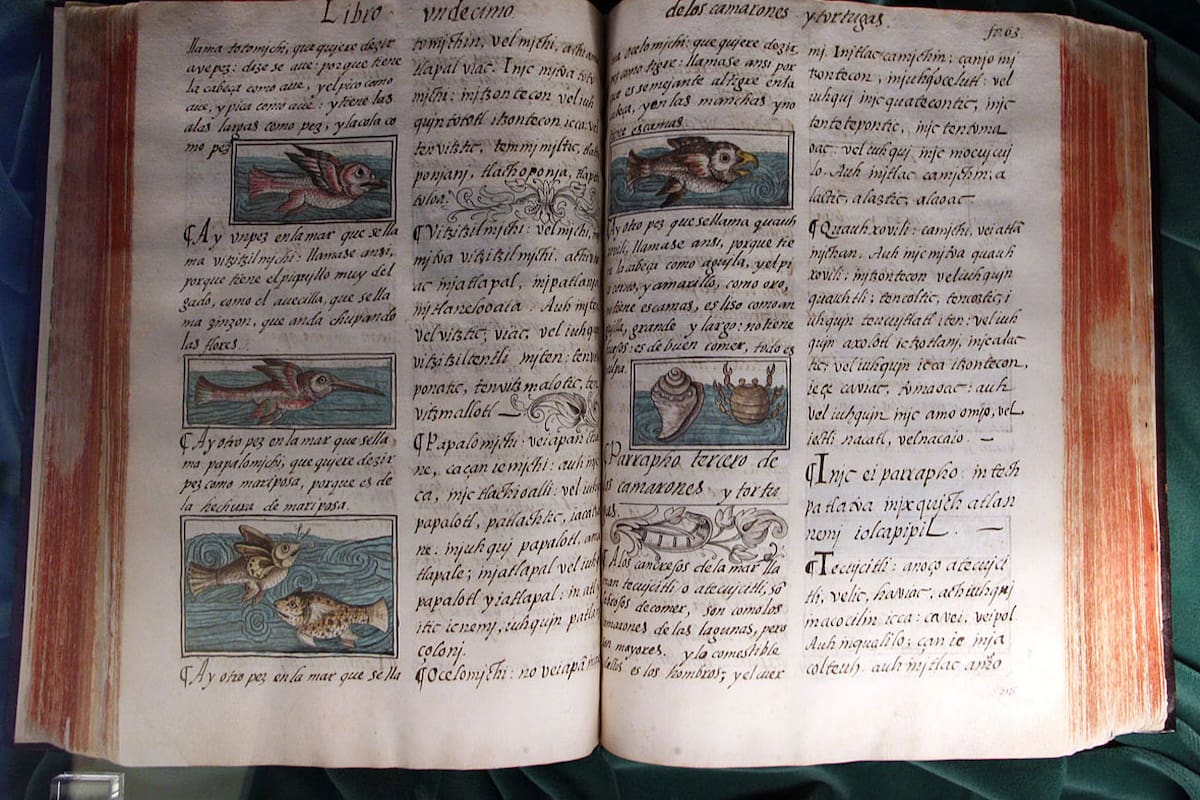 Libro vndecimo
llama totomichi, que quiere dezir
ave pez: dize se aue: porque tiene
la cabeça como aue, y el pico como
aue, y pica como aue: y tiene las
alas largas como pez, y la cola co
mo pez
¶Ay vn pez en la mar que se lla
ma vitzitzilmichi: llamase ansi,
porque tiene el piquillo muy del
gado, como el avecilla, que se lla
ma zinzon, que anda chupando
las flores.
¶Ay otro pez en la mar que se lla
ma papalomichi, que quiere dezir
pez como mariposa, porque es de
la hechura de mariposa.
¶Ay otro pez en la mar que se lla
tomichin, vel michi,
tlapal viac. Injc mjtoa toto
michi: in jtzontecon vel iuh
quin tototl itzontecon icca: vel
tenvitztic, temmimiltic,
ponjanj, tlachoponja,
tuloa.
¶Vitzitzilmichi: vel michi,
mjtoa vitzitzilmichi,
ac in jatlapal, in jpatlanja
in jtlaneloaia. Auh in jten
vel vitztic, viac, vel iuhquin
vitzitziltentli in jten:
ponatic, tenvitzmalotic, ten
vitzmallotl —
¶Papalomichi: veiapan
ne, ca çan ie michi: auh injc
ca, injc tlachioalli: vel iuhquin
papalotl, patlachtic,
ne: in juhquj papalotl
tlapale; in jatlapal vel iuhquin
papalotl yiatlapal: in atl
itic ic nemj, iuhquin
çolonj.
¶Ocelomichi: no veiapan
de los camarones y tortugas.
fo. 63.
ocelomichi: que quiere dezir,
pez como tigre: llamase ansi por
que es semejante al tigre en la
cabeça, y en las manchas y no
tiene escamas.
Ay otro pez que se llama quauh
xovili, llamase ansi, porque tie
ne la cabeça como aguila, y el pi
co corvo, y amarillo, como oro,
no tiene escamas, es liso como an
guilla, grande y largo: no tiene
huesos: es de buen comer, todo es
pulpa.
¶Parrapho tercero de
los camarones y tortu
gas.
¶A los cangrejos de la mar lla
man tecuicitli o atecuicitli, so
de comer, son como los
camarones de las lagunas, pero
son mayores. y lo comestible
dellos es los hombros; y el cuer
mj. In itlac ca michin: çan jo in j
tzontecon, in juhqj ocelutl: vel
iuhquj injc quatecontic, injc
tentetepontic, injc tentoma
oac: vel iuhquj, injc mocuicui
lo. Auh in itlac ca michin: a
lactic, alaztic, alaoac.
¶Quauhxovili: ca michi, vei atla
mjchan. Auh injc mjtoa quauh
xovili: in jtzontecon vel iuhquin
quauhtli; tencoltic, tencoztic, i
uhquin teucujtlatl iten: vel iuh
quin axolotl ic tzotlanj, injc alac
tic, vel iuhquin icca itzontecon,
icce caviac, tomaoac: auh
vel iuhquin injc amo omijo, vel
ixtli nacatl, vel nacaio. —
¶Injc ei parrapho: intech
patlatoa in ixquich atlan
nemj ioicapipil. —
¶Tecujcitli: anoço atecuici
tli, velic, haviac, ach iuhquj
in acocilin icca: ca vei, veipol.
Auh in qualilo; çan ie in ja
colteuh. auh in jtlac anço
216